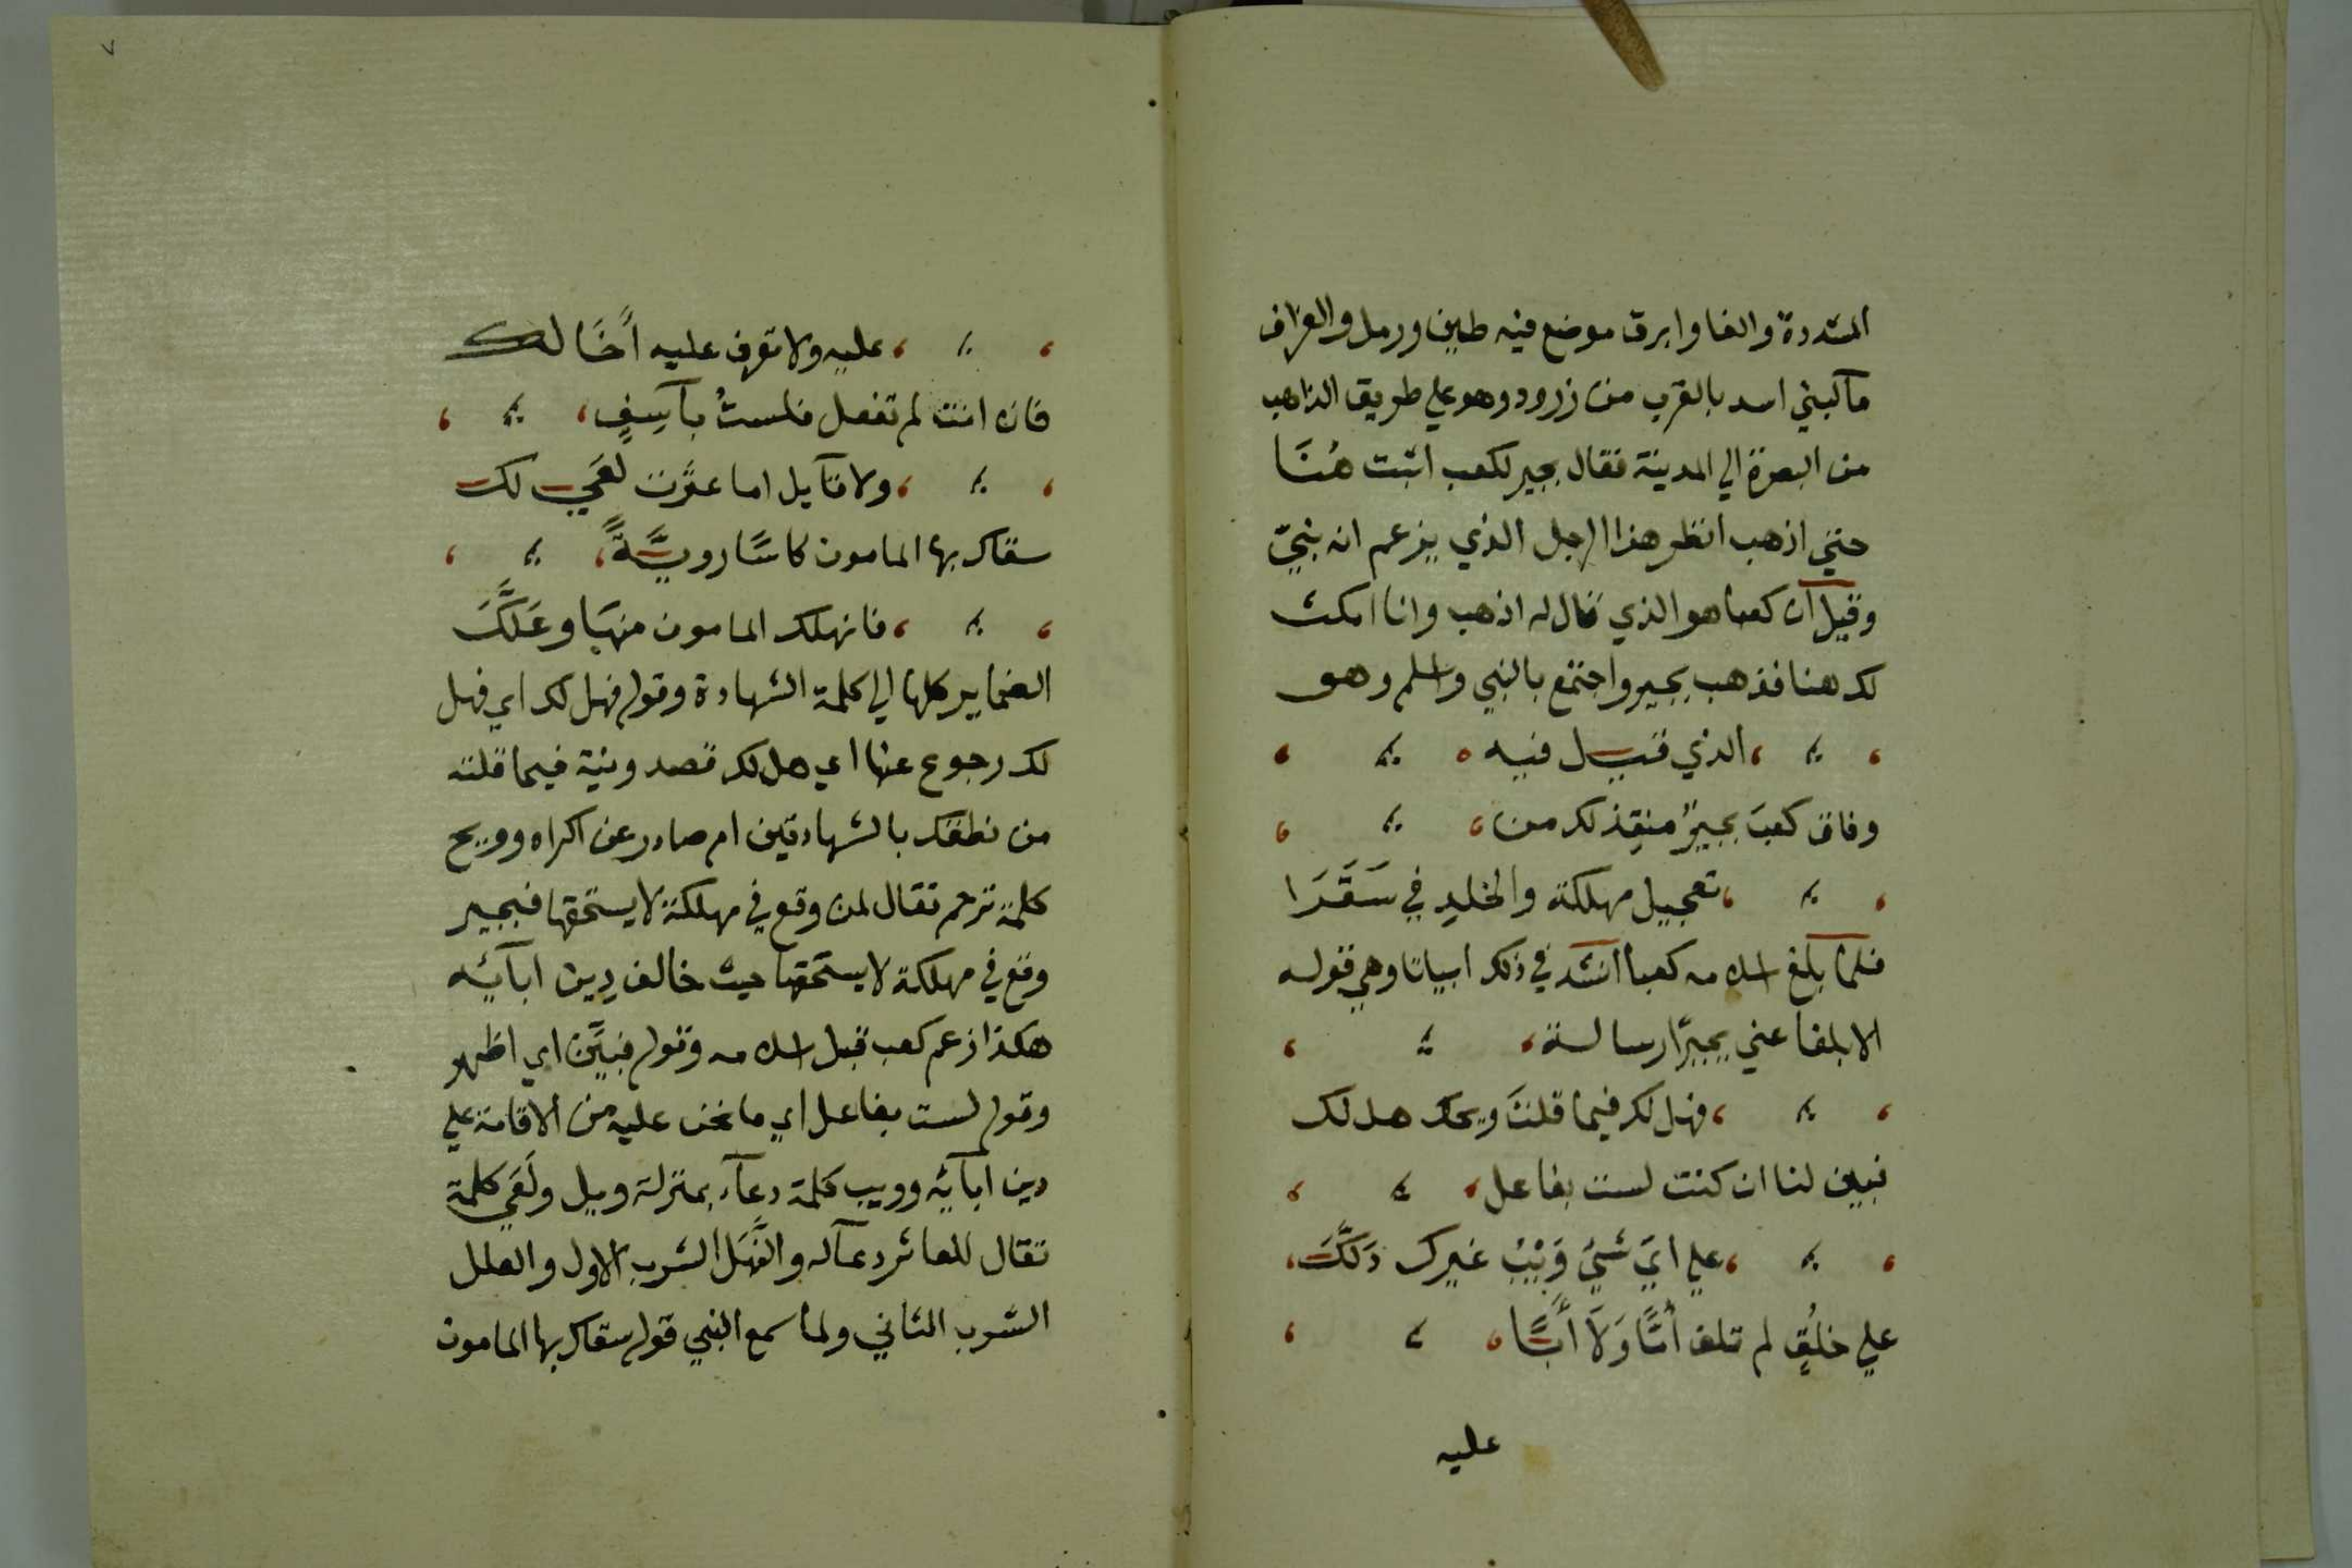 المشددة والفا وابرق موضع فيه طين ورمل والعزاف
مآ لبني اسد بالقرب من زرود وهو علي طريق الذاهب
من البصرة الي المدينة فقال بجير لكعب اثبت هُنَا
حتي اذهب انظر هذا الرجل الذي يزعم انه نبيّ
وقيل ان كعبا هو الذي قال له اذهب وانا امكث
لك هنا فذهب بجير واجتمع بالنبي واسلم وهو
الذي قيل فيه
وفاق كعبَ بجيرٌ منقِذ لك من
تعجيل مهلكة والخلدِ في سَقَرَا
فلما بلغ اسلامه كعبا انشد في ذلك ابياتا وهي قوله
الا ابلغا عني بجيرًا رسالة
فهل لك فيما قلتَ ويحك هل لك
فبين لنا ان كنت لست بفاعل
علي ايّ شيٍّ وَيْبَ غيرك دَلَّكَ
علي خلُقٍ لم تلف أمًّا وَلَا أَبًا
عليه
٧
عليه ولا تعرف عليه أخًا لك
فان انت لم تفعل فلستُ بآسِفٍ
ولا قآيل اما عثرت لعًي لك
سقاك بها المامون كاسًا رويَّةً
فانهلك المامون منها وعَلَّكَ
الضماير كلها الي كلمة الشهادة وقوله فهل لك اي فهل
لك رجوع عنها اي هل لك قصد ونية فيما قلته
من نطقك بالشهادتين ام صادر عن اكراه وويح
كلمة ترحم تقال لمن وقع في مهلكة لا يستحقها فبجير
وقع في مهلكة لا يستحقها حيث خالف دين ابآئه
هكذا زعم كعب قبل اسلامه وقوله فبيِّن اي اظهر
وقوله لست بفاعل اي ما نحن عليه من الاقامة علي
دين ابآئه وويب كلمة دعآء بمنزلة ويل ولَعًي كلمة
تقال للعاثر دعآ له والنَّهَل الشرب الاول والعلل
الشرب الثاني ولما سمع النبي قوله سقاك بها المامون